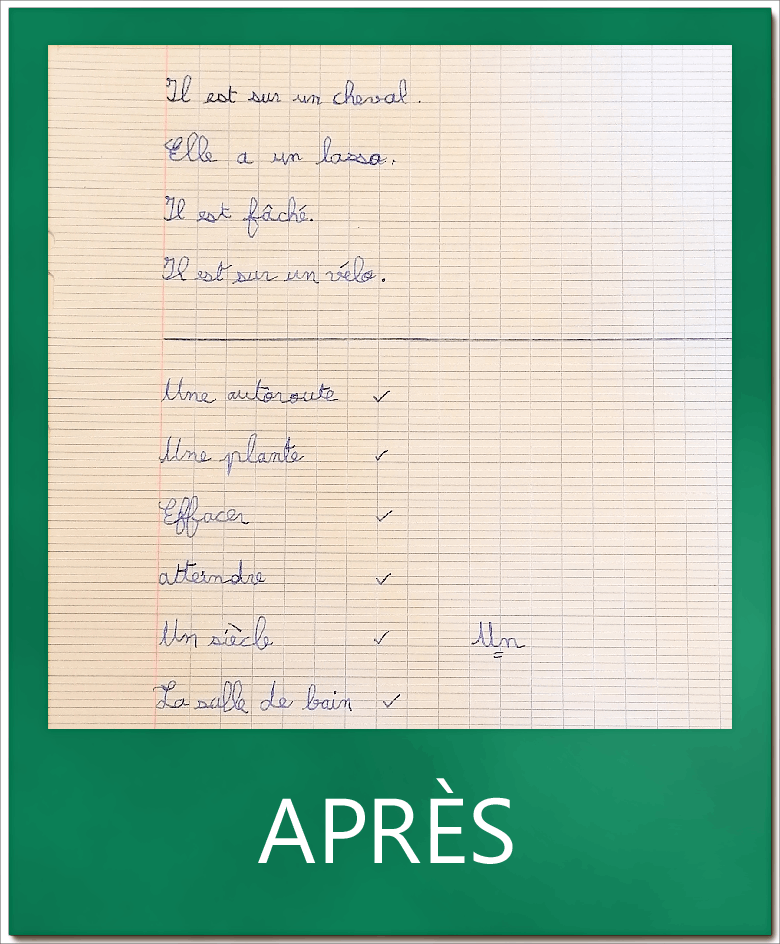 Il est sur un cheval.
Elle a un lasso.
Il est fâché.
Il est sur un vélo.
Une autoroute ✓
Une plante ✓
Effacer ✓
atteindre ✓
Un siècle ✓ Un
La salle de bain ✓
APRÈS